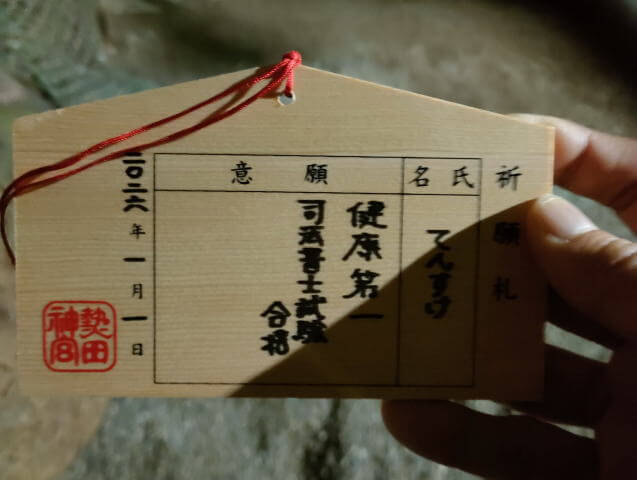 祈願札
氏名
てんすけ
願意
健康第一
司法書士試験
合格
二〇二六年一月一日
熱田
神宮